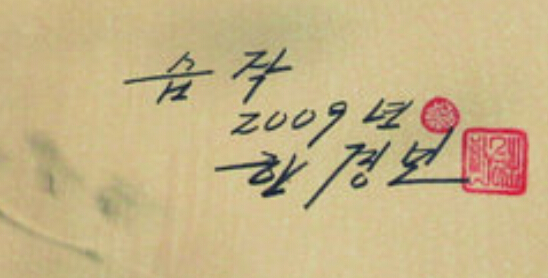 습작
2009년
한경보